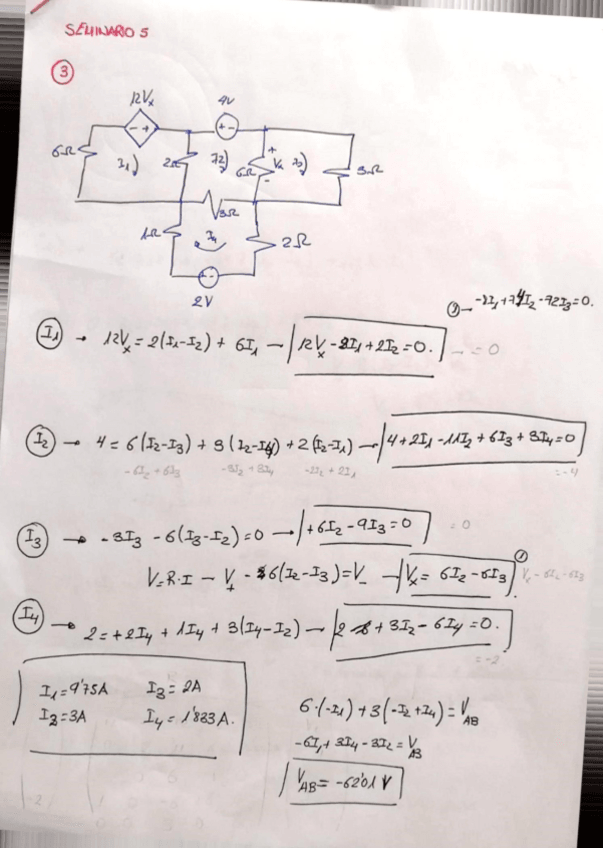 SEMINARIO 5
3
12Vx
4V
- +
+ -
6Ω
I1
2Ω
I2
6Ω
+
Vx
-
I3
3Ω
3Ω
1Ω
I4
2Ω
2V
①→ -8I1+74I2-72I3=0.
I1 → 12Vx = 2(I1-I2) + 6I1 — 12Vx - 8I1 + 2I2 = 0. = 0
I2 → 4 = 6(I2-I3) + 3(I2-I4) + 2(I2-I1) → 4+2I1-11I2+6I3+3I4=0
-6I2+6I3 -3I2+3I4 -2I2+2I1 = -4
I3 → -3I3 - 6(I3-I2) = 0 → +6I2-9I3=0 = 0
V=R·I — V+ - 6(I2-I3) = V- — Vx = 6I2-6I3 ①
I4 → 2 = +2I4 + 1I4 + 3(I4-I2) — 2 + 3I2 - 6I4 = 0.
= -2
I1=9'75A I3= 2A
I2=3A I4= 1'833A.
6·(-I1) + 3(-I2+I4) = VAB
-6I1 + 3I4 - 3I2 = VAB
VAB = -62'01 V